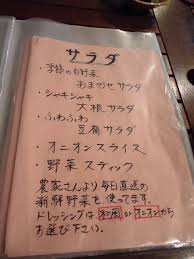 サラダ
・季節の旬野菜
おまかせサラダ
・シャキシャキ
大根サラダ
・ふわふわ
豆腐サラダ
・オニオンスライス
・野菜スティック
農家さんより毎日直送の
新鮮野菜を使ってます。
ドレッシングは和風orオニオンから
お選び下さい。